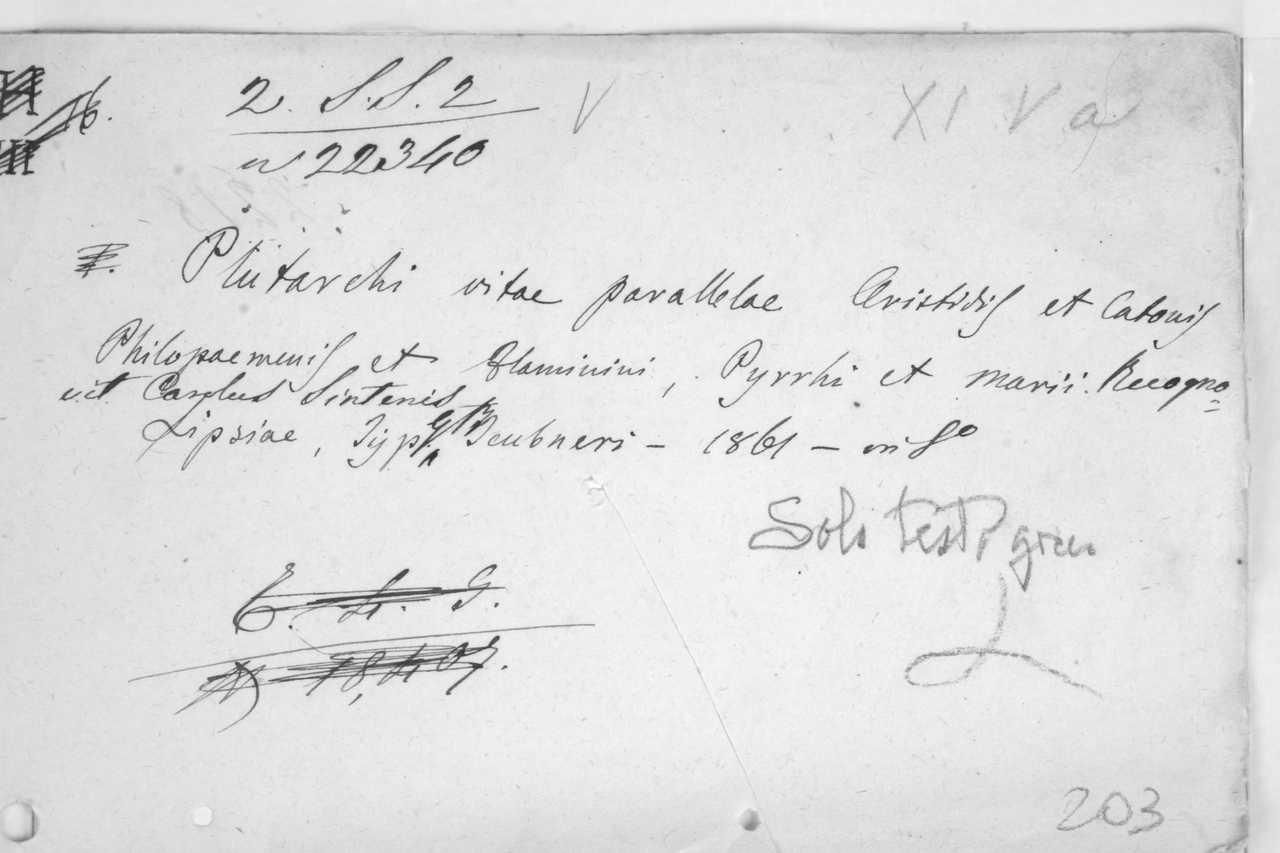 16.
2. S. S. 2 V XI V a
n 22340
Plutarchi vitae parallelae Aristidis et Catonis
Philopaemenis et Flaminini, Pyrrhi et Marii. Recogno=
vit Carolus Sintenis
Lipsiae, Typ. Teubneri - 1861 - in 8°
Solo testo greco
E. H. G.
203